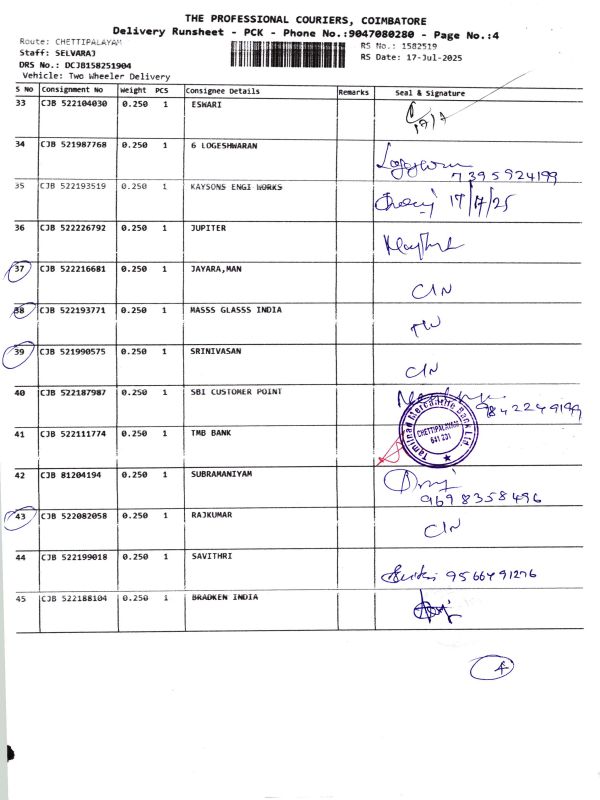 THE PROFESSIONAL COURIERS, COIMBATORE
Delivery Runsheet - PCK - Phone No.:9047080280 - Page No.:4
Route: CHETTIPALAYAM
Staff: SELVARAJ
DRS No.: DCJB158251904
Vehicle: Two Wheeler Delivery
RS No.: 1582519
RS Date: 17-Jul-2025
S No Consignment No Weight PCS Consignee Details Remarks Seal & Signature
33 CJB 522104030 0.250 1 ESWARI
34 CJB 521987768 0.250 1 6 LOGESHWARAN
7395924199
35 CJB 522193519 0.250 1 KAYSONS ENGI WORKS 17/7/25
36 CJB 522226792 0.250 1 JUPITER
37 CJB 522216681 0.250 1 JAYARA,MAN CIN
38 CJB 522193771 0.250 1 MASSS GLASSS INDIA
39 CJB 521990575 0.250 1 SRINIVASAN CIN
40 CJB 522187987 0.250 1 SBI CUSTOMER POINT
9842249199
41 CJB 522111774 0.250 1 TMB BANK
Tamilnad Mercantile Bank Ltd
CHETTIPALAYAM
641 201
42 CJB 81204194 0.250 1 SUBRAMANIYAM
9698358496
43 CJB 522082058 0.250 1 RAJKUMAR CIN
44 CJB 522199018 0.250 1 SAVITHRI 9566491276
45 CJB 522188104 0.250 1 BRADKEN INDIA
4